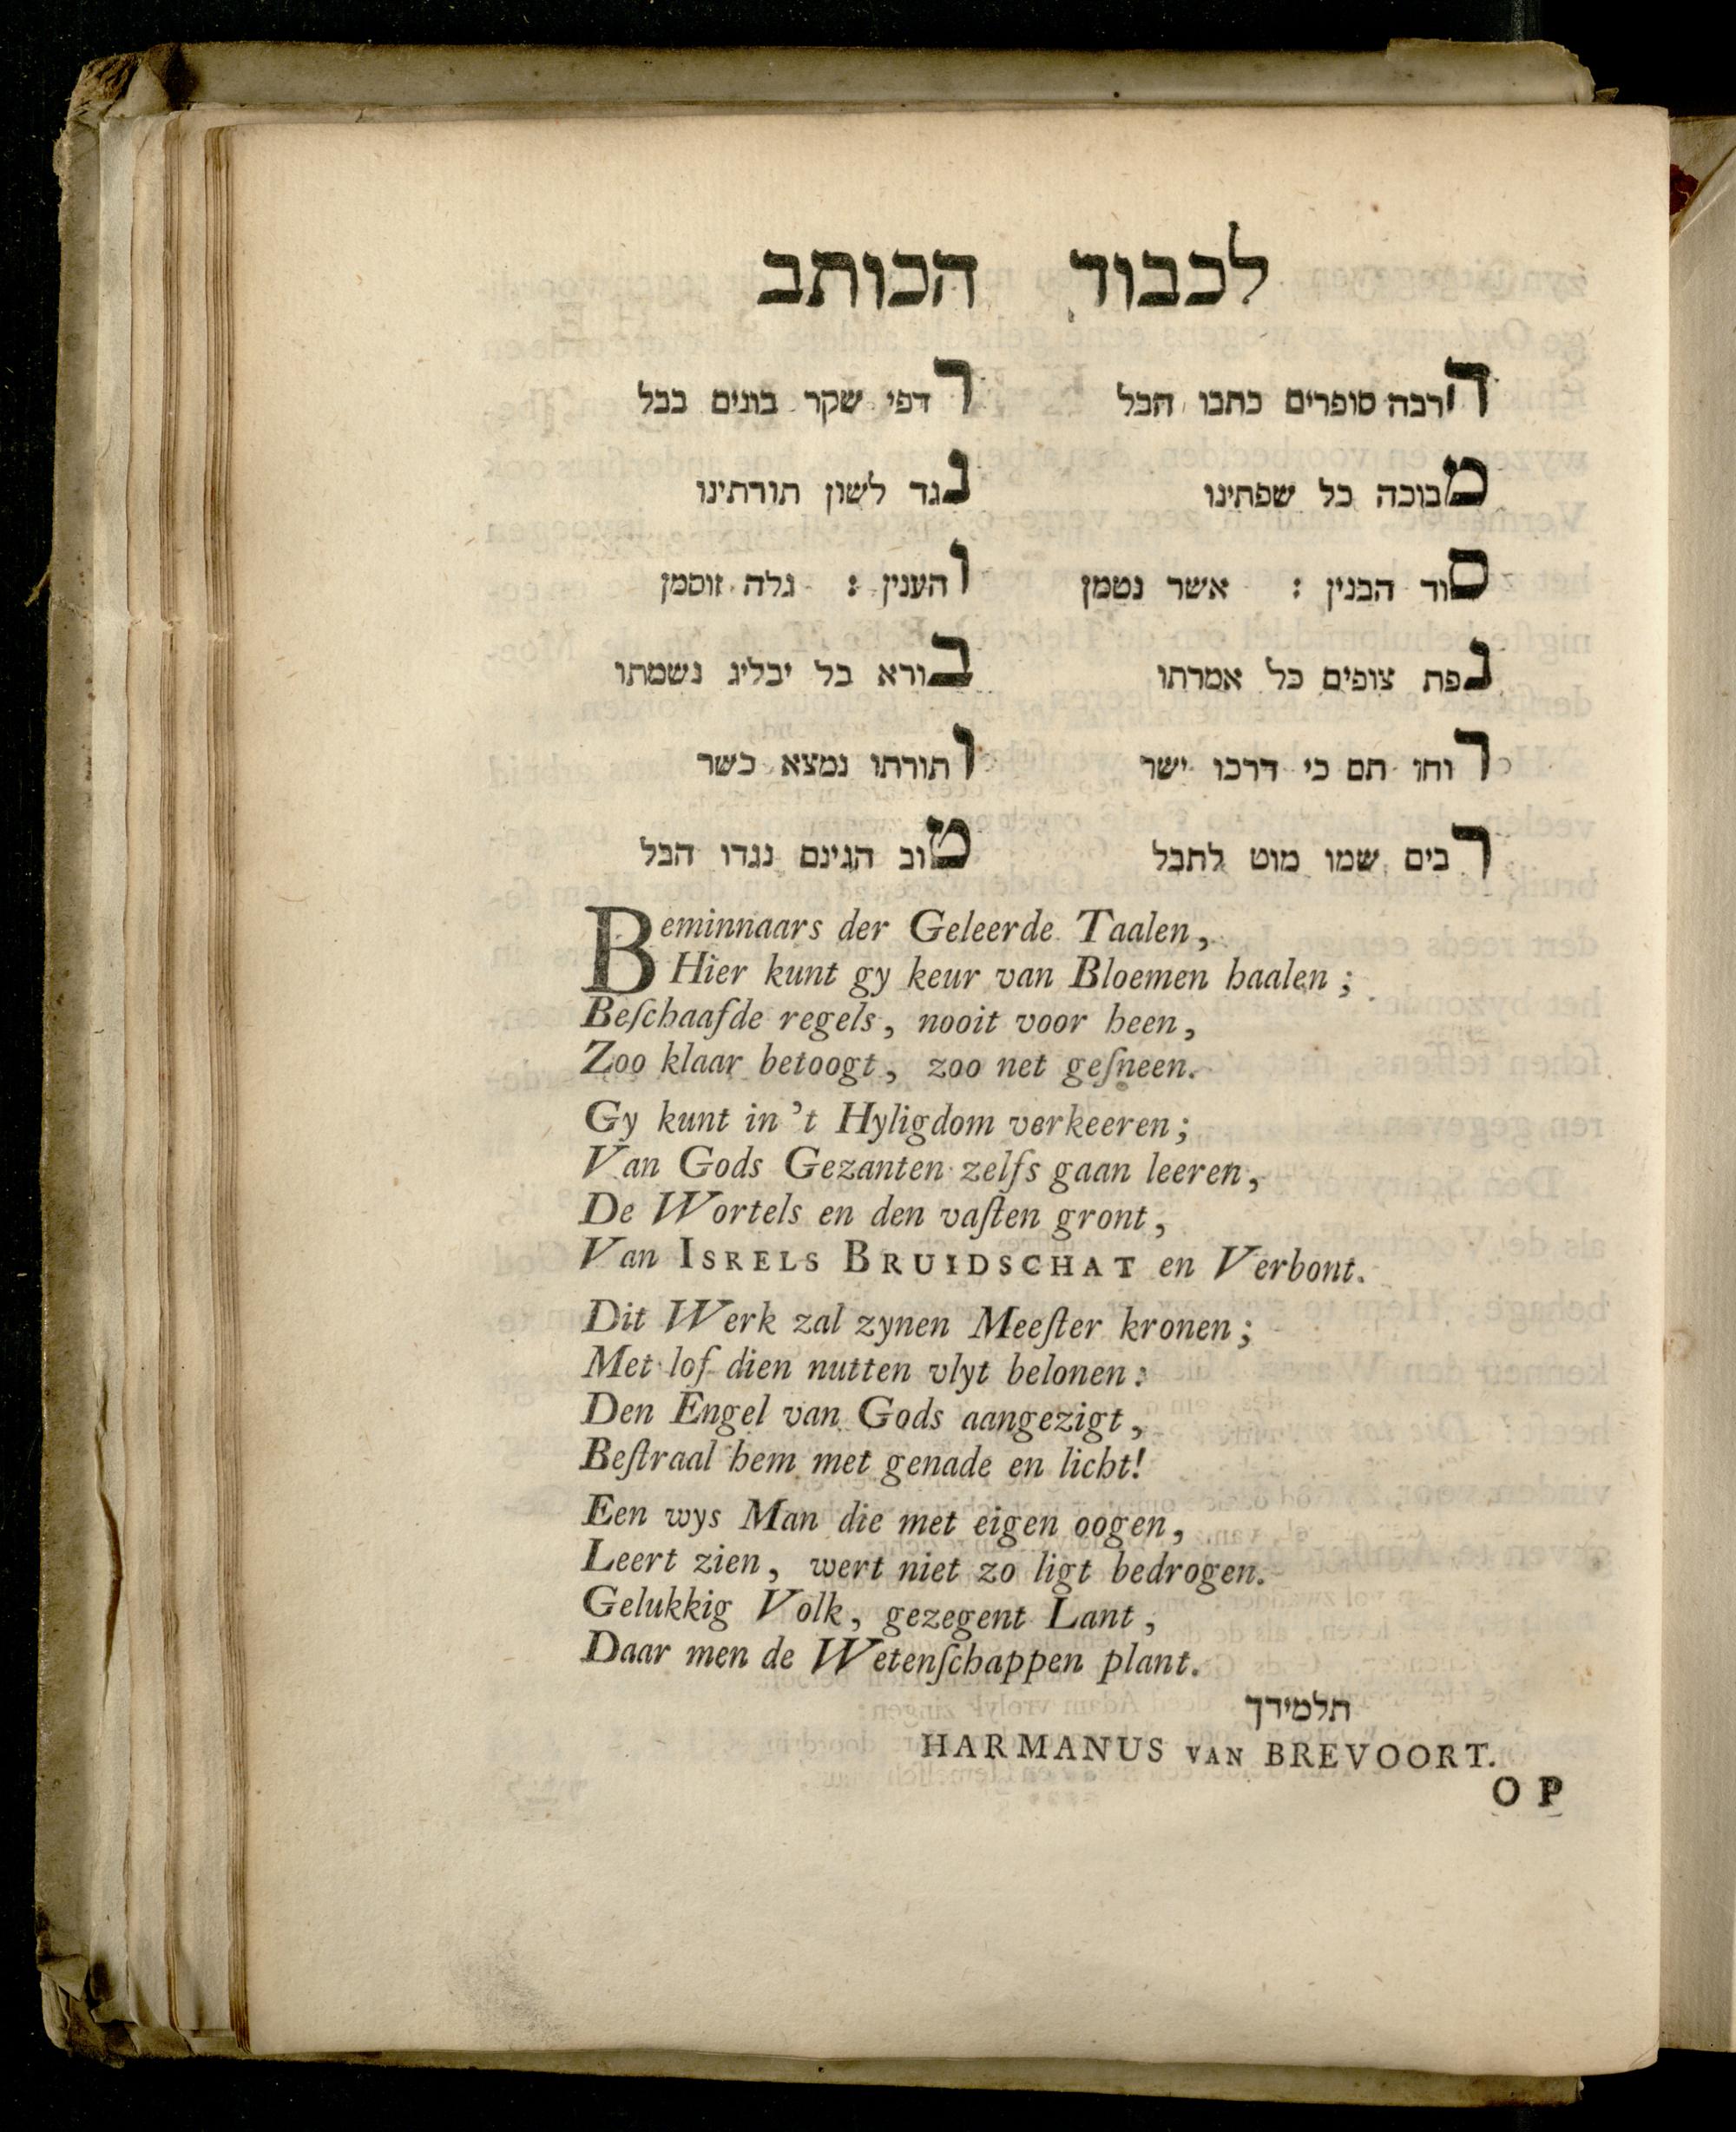 לכבוד הכותב
הרבה סופרים כתבו הבל רדפי שקר בונים בבל
מבוכה כל שפתינו נגד לשון תורתינו
סוד הבנין : אשר נטמן והענין : גלה זוסמן
נפת צופים כל אמרתו בורא בל יבליג נשמתו
רוחו תם כי דרכו ישר ותורתו נמצא כשר
רבים שמו מוט לתבל טוב הגינם נגדו הבל
Beminnaars der Geleerde Taalen,
Hier kunt gy keur van Bloemen haalen;
Beſchaafde regels, nooit voor heen,
Zoo klaar betoogt, zoo net geſneen.
Gy kunt in 't Hyligdom verkeeren;
Van Gods Gezanten zelfs gaan leeren,
De Wortels en den vaſten gront,
Van ISRELS BRUIDSCHAT en Verbont.
Dit Werk zal zynen Meeſter kronen;
Met lof dien nutten vlyt belonen:
Den Engel van Gods aangezigt,
Beſtraal hem met genade en licht!
Een wys Man die met eigen oogen,
Leert zien, wert niet zo ligt bedrogen.
Gelukkig Volk, gezegent Lant,
Daar men de Wetenſchappen plant.
תלמידך
HARMANUS VAN BREVOORT.
OP